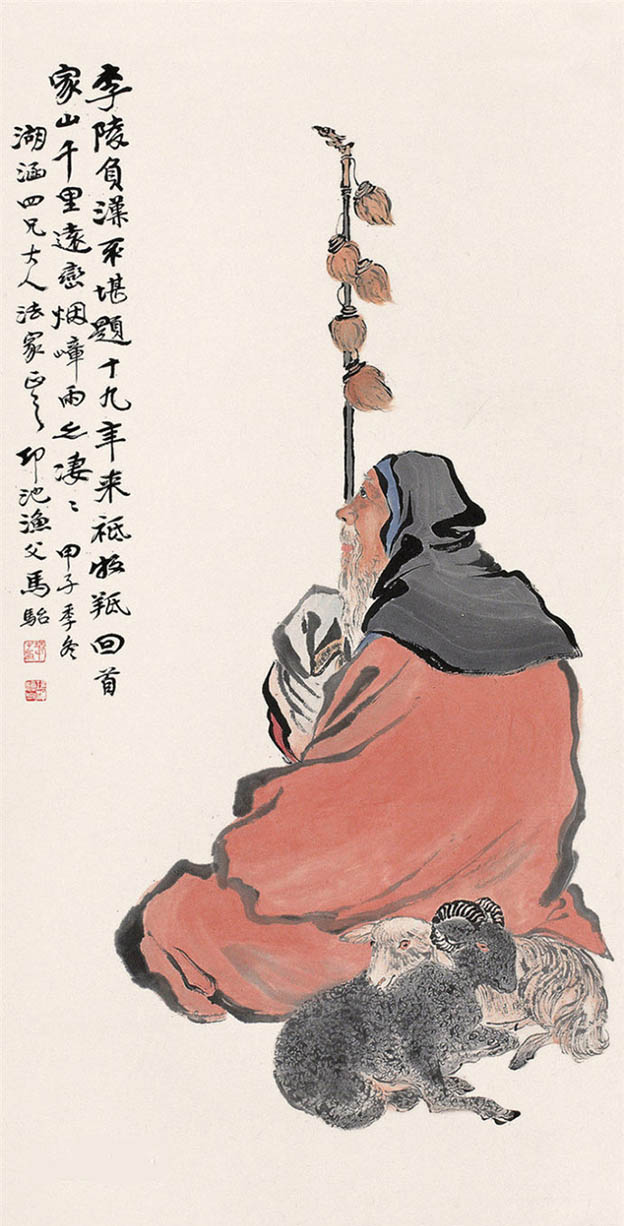 李陵負漢不堪題十九年來祇牧羝回首
家山千里遠巒烟嶂雨淒〻甲子季冬
湖涵四兄大人法家正之卭池漁父馬駘